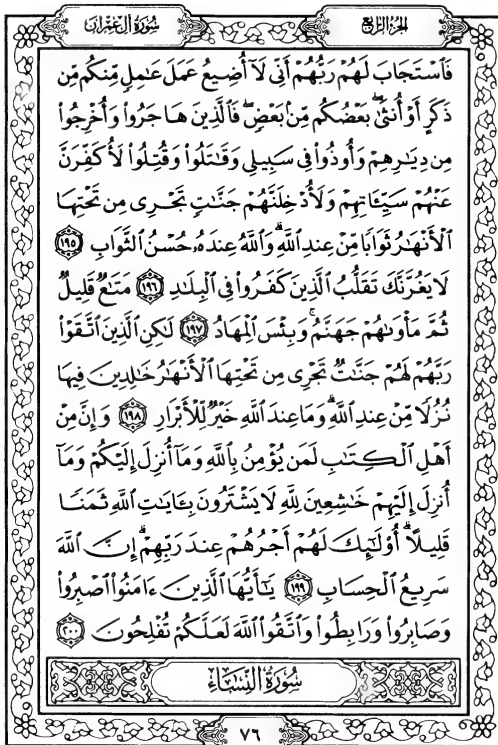 سُورَةُ آلِ عِمْرَانَ
الجُزْءُ الرَّابِعُ
فَٱسْتَجَابَ لَهُمْ رَبُّهُمْ أَنِّى لَآ أُضِيعُ عَمَلَ عَٰمِلٍ مِّنكُم مِّن
ذَكَرٍ أَوْ أُنثَىٰ ۖ بَعْضُكُم مِّنۢ بَعْضٍ ۖ فَٱلَّذِينَ هَاجَرُوا۟ وَأُخْرِجُوا۟
مِن دِيَٰرِهِمْ وَأُوذُوا۟ فِى سَبِيلِى وَقَٰتَلُوا۟ وَقُتِلُوا۟ لَأُكَفِّرَنَّ
عَنْهُمْ سَيِّـَٔاتِهِمْ وَلَأُدْخِلَنَّهُمْ جَنَّٰتٍ تَجْرِى مِن تَحْتِهَا
ٱلْأَنْهَٰرُ ثَوَابًا مِّنْ عِندِ ٱللَّهِ ۗ وَٱللَّهُ عِندَهُۥ حُسْنُ ٱلثَّوَابِ ١٩٥
لَا يَغُرَّنَّكَ تَقَلُّبُ ٱلَّذِينَ كَفَرُوا۟ فِى ٱلْبِلَٰدِ ١٩٦ مَتَٰعٌ قَلِيلٌ
ثُمَّ مَأْوَىٰهُمْ جَهَنَّمُ ۚ وَبِئْسَ ٱلْمِهَادُ ١٩٧ لَٰكِنِ ٱلَّذِينَ ٱتَّقَوْا۟
رَبَّهُمْ لَهُمْ جَنَّٰتٌ تَجْرِى مِن تَحْتِهَا ٱلْأَنْهَٰرُ خَٰلِدِينَ فِيهَا
نُزُلًا مِّنْ عِندِ ٱللَّهِ ۗ وَمَا عِندَ ٱللَّهِ خَيْرٌ لِّلْأَبْرَارِ ١٩٨ وَإِنَّ مِنْ
أَهْلِ ٱلْكِتَٰبِ لَمَن يُؤْمِنُ بِٱللَّهِ وَمَآ أُنزِلَ إِلَيْكُمْ وَمَآ
أُنزِلَ إِلَيْهِمْ خَٰشِعِينَ لِلَّهِ لَا يَشْتَرُونَ بِـَٔايَٰتِ ٱللَّهِ ثَمَنًا
قَلِيلًا ۗ أُو۟لَٰٓئِكَ لَهُمْ أَجْرُهُمْ عِندَ رَبِّهِمْ ۗ إِنَّ ٱللَّهَ
سَرِيعُ ٱلْحِسَابِ ١٩٩ يَٰٓأَيُّهَا ٱلَّذِينَ ءَامَنُوا۟ ٱصْبِرُوا۟
وَصَابِرُوا۟ وَرَابِطُوا۟ وَٱتَّقُوا۟ ٱللَّهَ لَعَلَّكُمْ تُفْلِحُونَ ٢٠٠
سُورَةُ النِّسَاءِ
٧٦